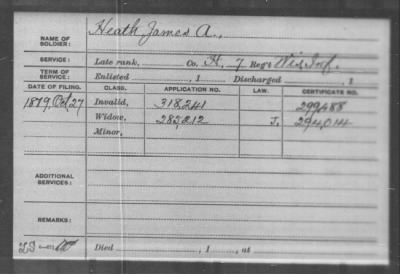 NAME OF SOLDIER: Heath, James A.,
SERVICE: Late rank, Co. H, 7 Reg't Wis. Inf.
TERM OF SERVICE: Enlisted , 1 Discharged , 1
DATE OF FILING. CLASS. APPLICATION NO. LAW. CERTIFICATE NO.
1879, Oct, 27 Invalid, 318,241 299,488
Widow, 282,212 J. 294,014
Minor,
ADDITIONAL SERVICES:
REMARKS:
Died , 1 , at